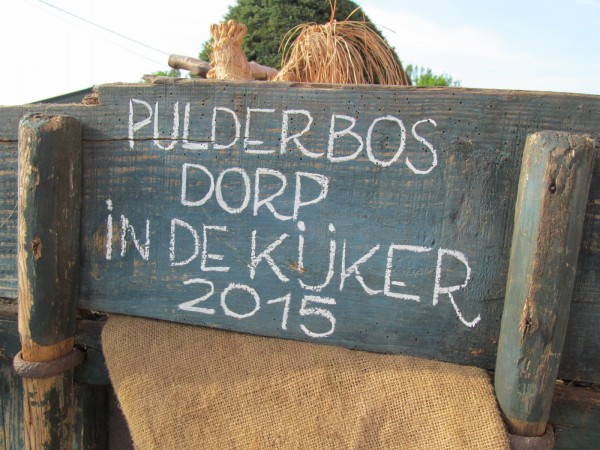 PULDERBOS
DORP
iN DE KijKER
2015